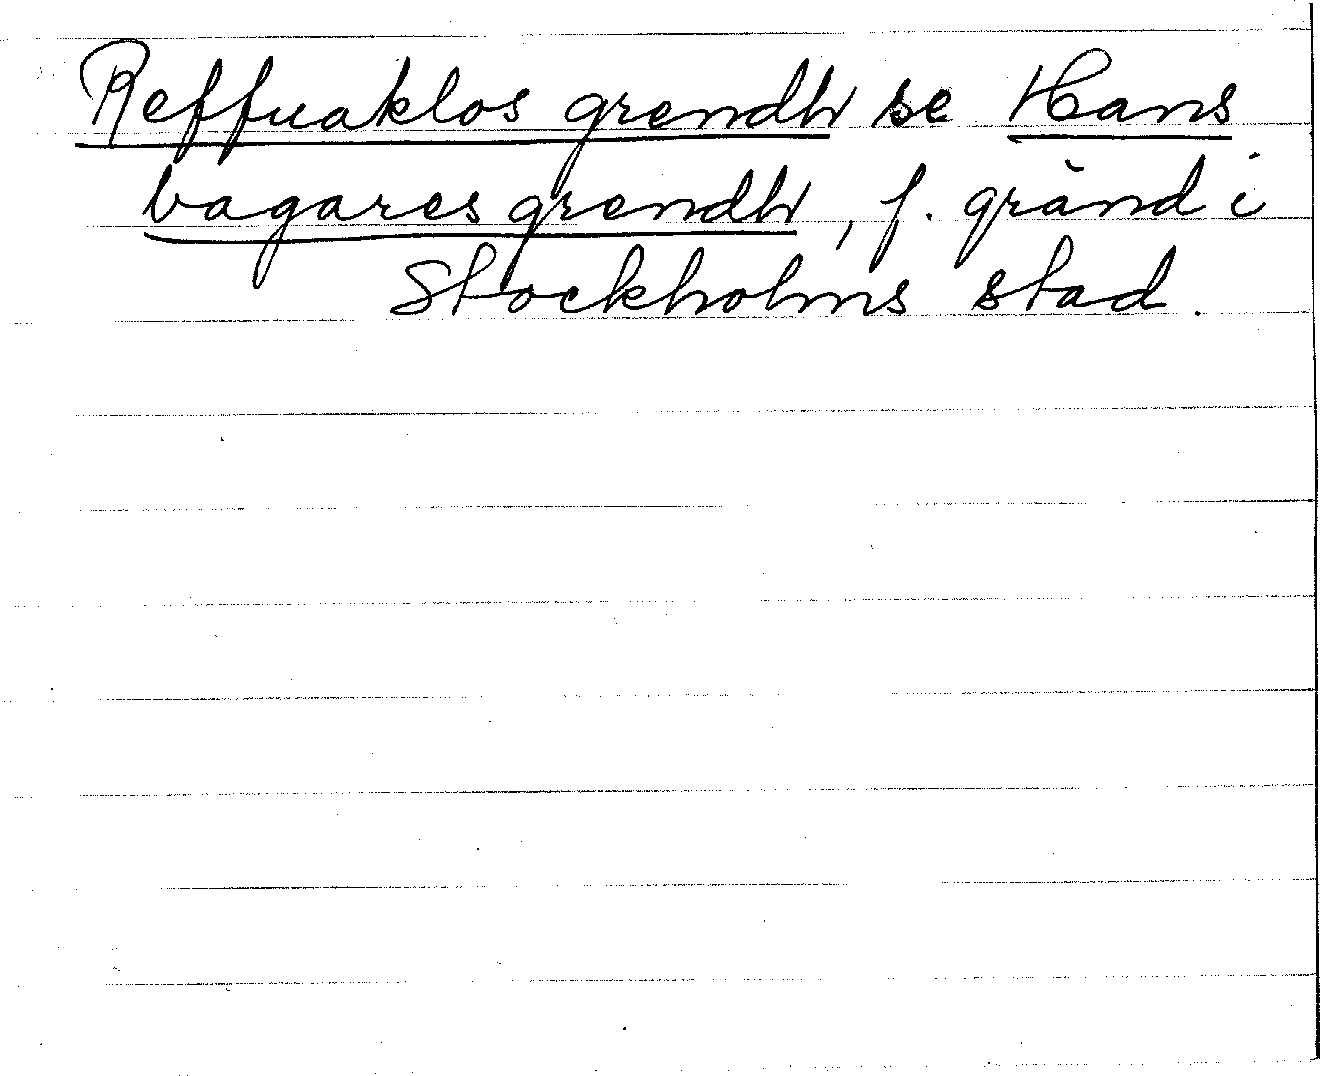 Reffuaklos grendh se Hans
bagares grendh, f. gränd i
Stockholms stad.